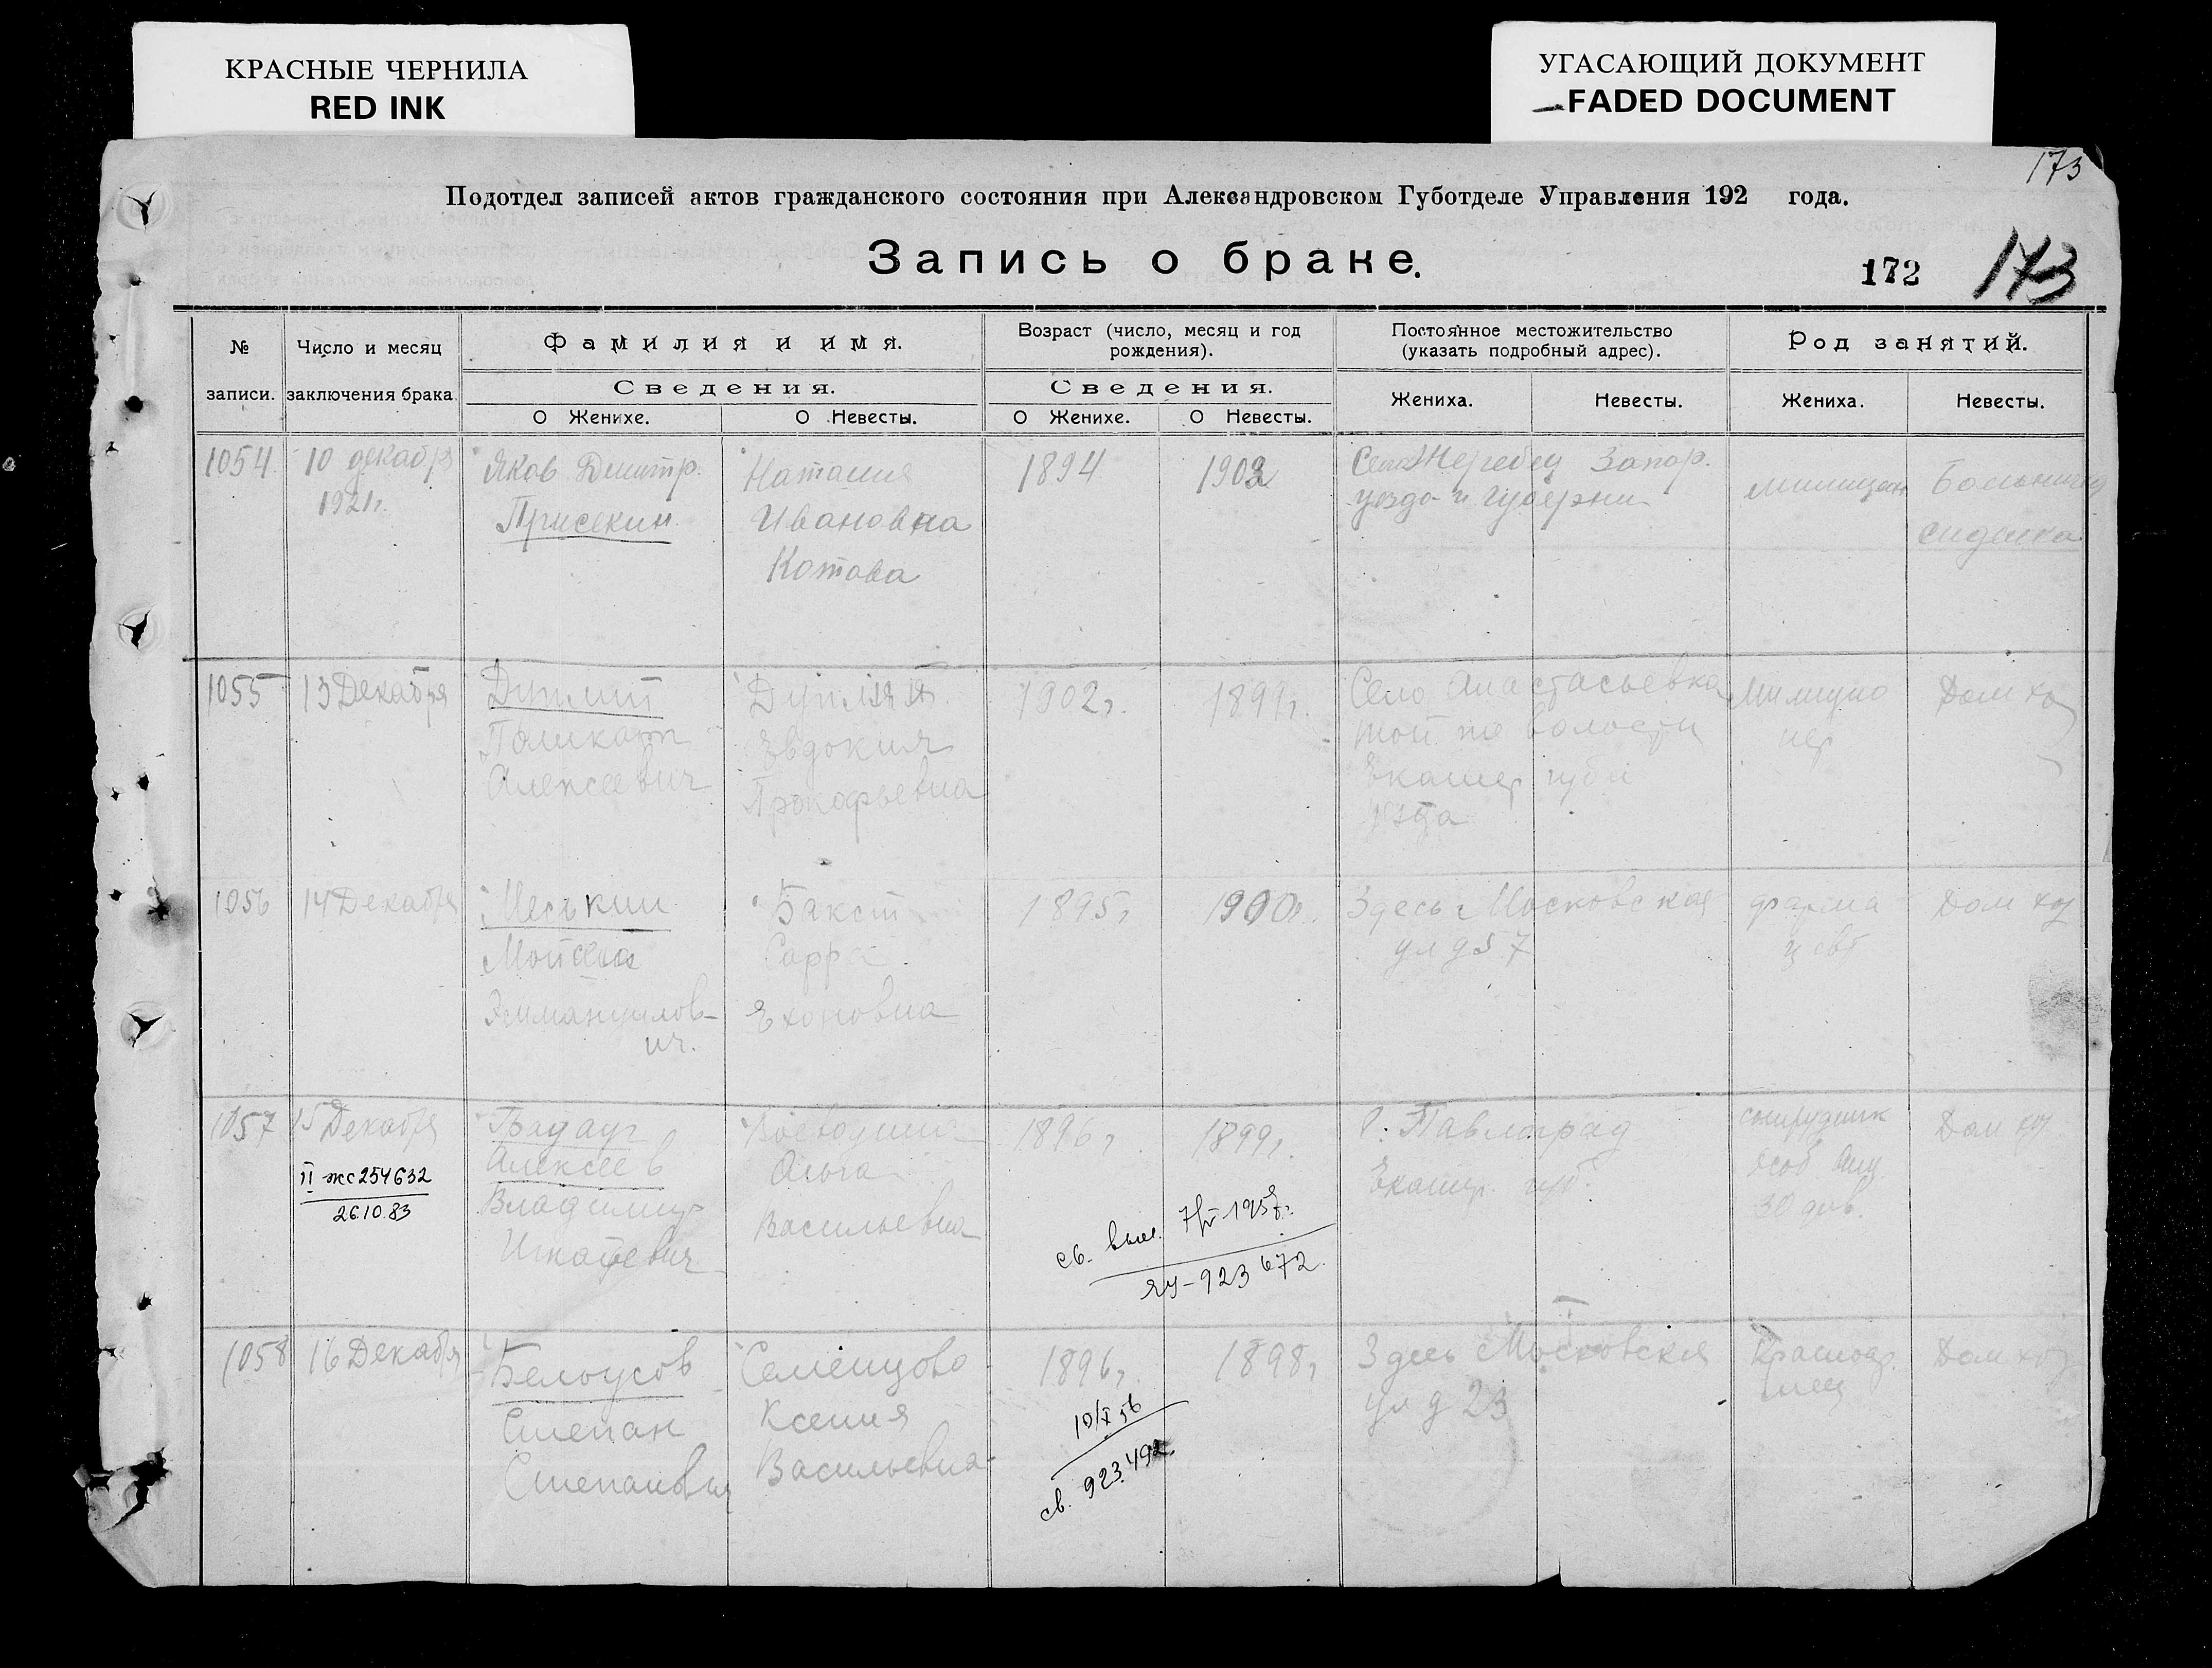 КРАСНЫЕ ЧЕРНИЛА
RED INK
УГАСАЮЩИЙ ДОКУМЕНТ
FADED DOCUMENT
173
Подотдел записей актов гражданского состояния при Александровском Губотделе Управления 192 года.
Запись о браке.
172 173
№ записи.
Число и месяц заключения брака
Фамилия и имя.
Сведения.
О Женихе.
О Невесты.
Возраст (число, месяц и год рождения).
Сведения.
О Женихе.
О Невесты.
Постоянное местожительство (указать подробный адрес).
Жениха.
Невесты.
Род занятий.
Жениха.
Невесты.
1054
10 декабря
1921г.
Яков Дмитр.
Присекин
Наталия
Ивановна
Котова
1894
1902
Село Жеребец Запор.
уезда и губерни
Больнич
сиделка
1055
13 Декабря
Дуплий
Поликарп
Алексеевич
Евдокия
Прокофьевна
1902г.
1899г.
Село Анастасьевка
той же волости
Екатер губ
уезда
Милицио
нер
Дом хоз
1056
14 Декабря
Меськин
Моисей
Эммануилов-
ич.
Бакст
Сарра
1895г
1900г.
Здесь Московская
ул д 57
фарма
цевт
Дом хоз
1057
15 Декабря
II жс 254632
26.10.83
Алексеев
Владимир
Игнатьевич
Ольга
Васильевна
1896г
1899г.
св. вын.
ЯУ-923672.
г. Павлоград
Екатер. губ.
сотрудник
30 див.
Дом хоз
1058
16 Декабря
Белоусов
Степан
Степанович
Семенцова
Ксения
Васильевна
1896г.
1898г
10/X 56
св. 923.492.
Здесь Московская
ул д 23
Красноар
меец
Дом хоз